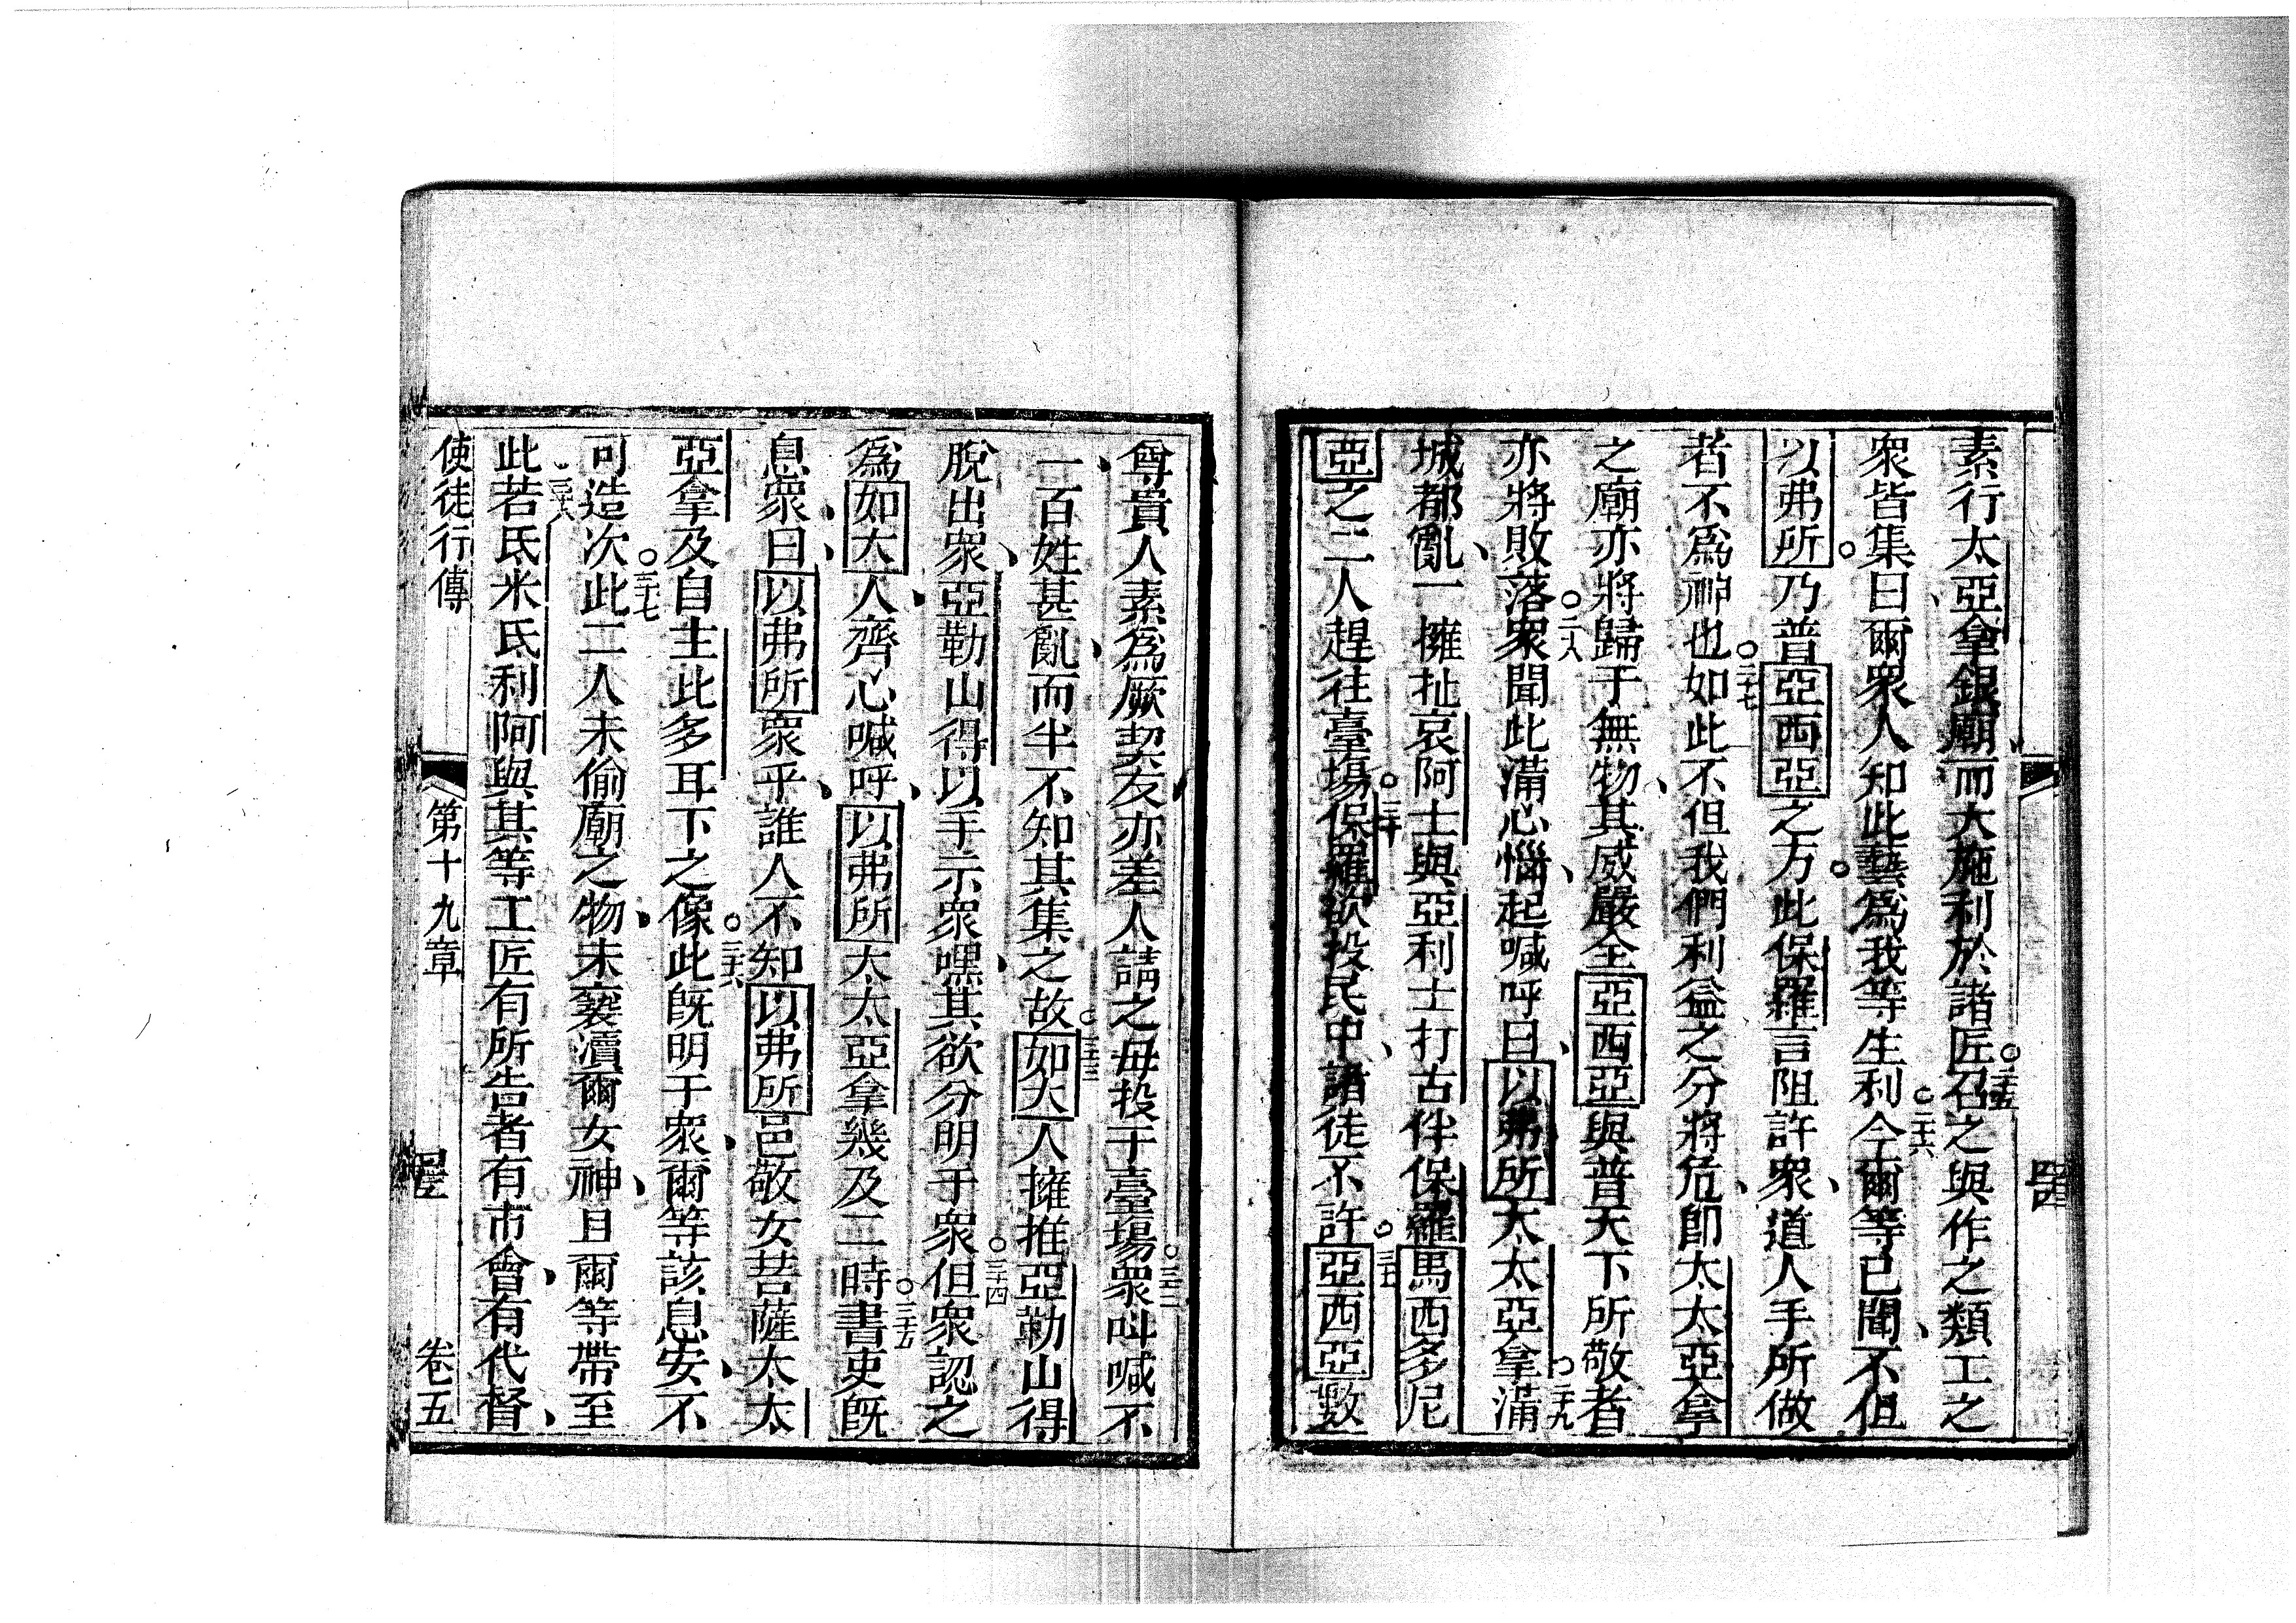 素行太亞拿銀廟而大施利於諸匠○二十五召之與作之類工之
衆皆集曰爾衆人知此藝爲我等生利○二十六今爾等已聞不但
以弗所乃普亞西亞之方此保羅言阻許衆道人手所做
者不爲神也○二十七如此不但我們利益之分將危卽太太亞拿
之廟亦將歸于無物其威嚴全亞西亞與普天下所敬者
亦將敗落○二十八衆聞此滿心惱起喊呼曰以弗所太太亞拿○二十九滿
城都亂一擁扯哀阿士與亞利士打古伴保羅馬西多尼
亞之二人趕往臺塲○三十保羅欲投民中諸徒不許○三十一亞西亞數
尊貴人素爲厥契友亦差人請之毋投于臺塲○三十二衆叫喊不
一百姓甚亂而半不知其集之故○三十三如大人擁推亞勒山得
脫出衆亞勒山得以手示衆嘿其欲分明于衆○三十四但衆認之
爲如大人齊心喊呼以弗所太太亞拿幾及二時○三十五書吏旣
息衆曰以弗所衆乎誰人不知以弗所邑敬女菩薩太太
亞拿及自主此多耳下之像○三十六此旣明于衆爾等該息安不
可造次○三十七此二人未偷廟之物未褻瀆爾女神且爾等帶至
此○三十八若氐米氐利阿與其等工匠有所告者有市會有代督
使徒行傳 第十九章 卷五